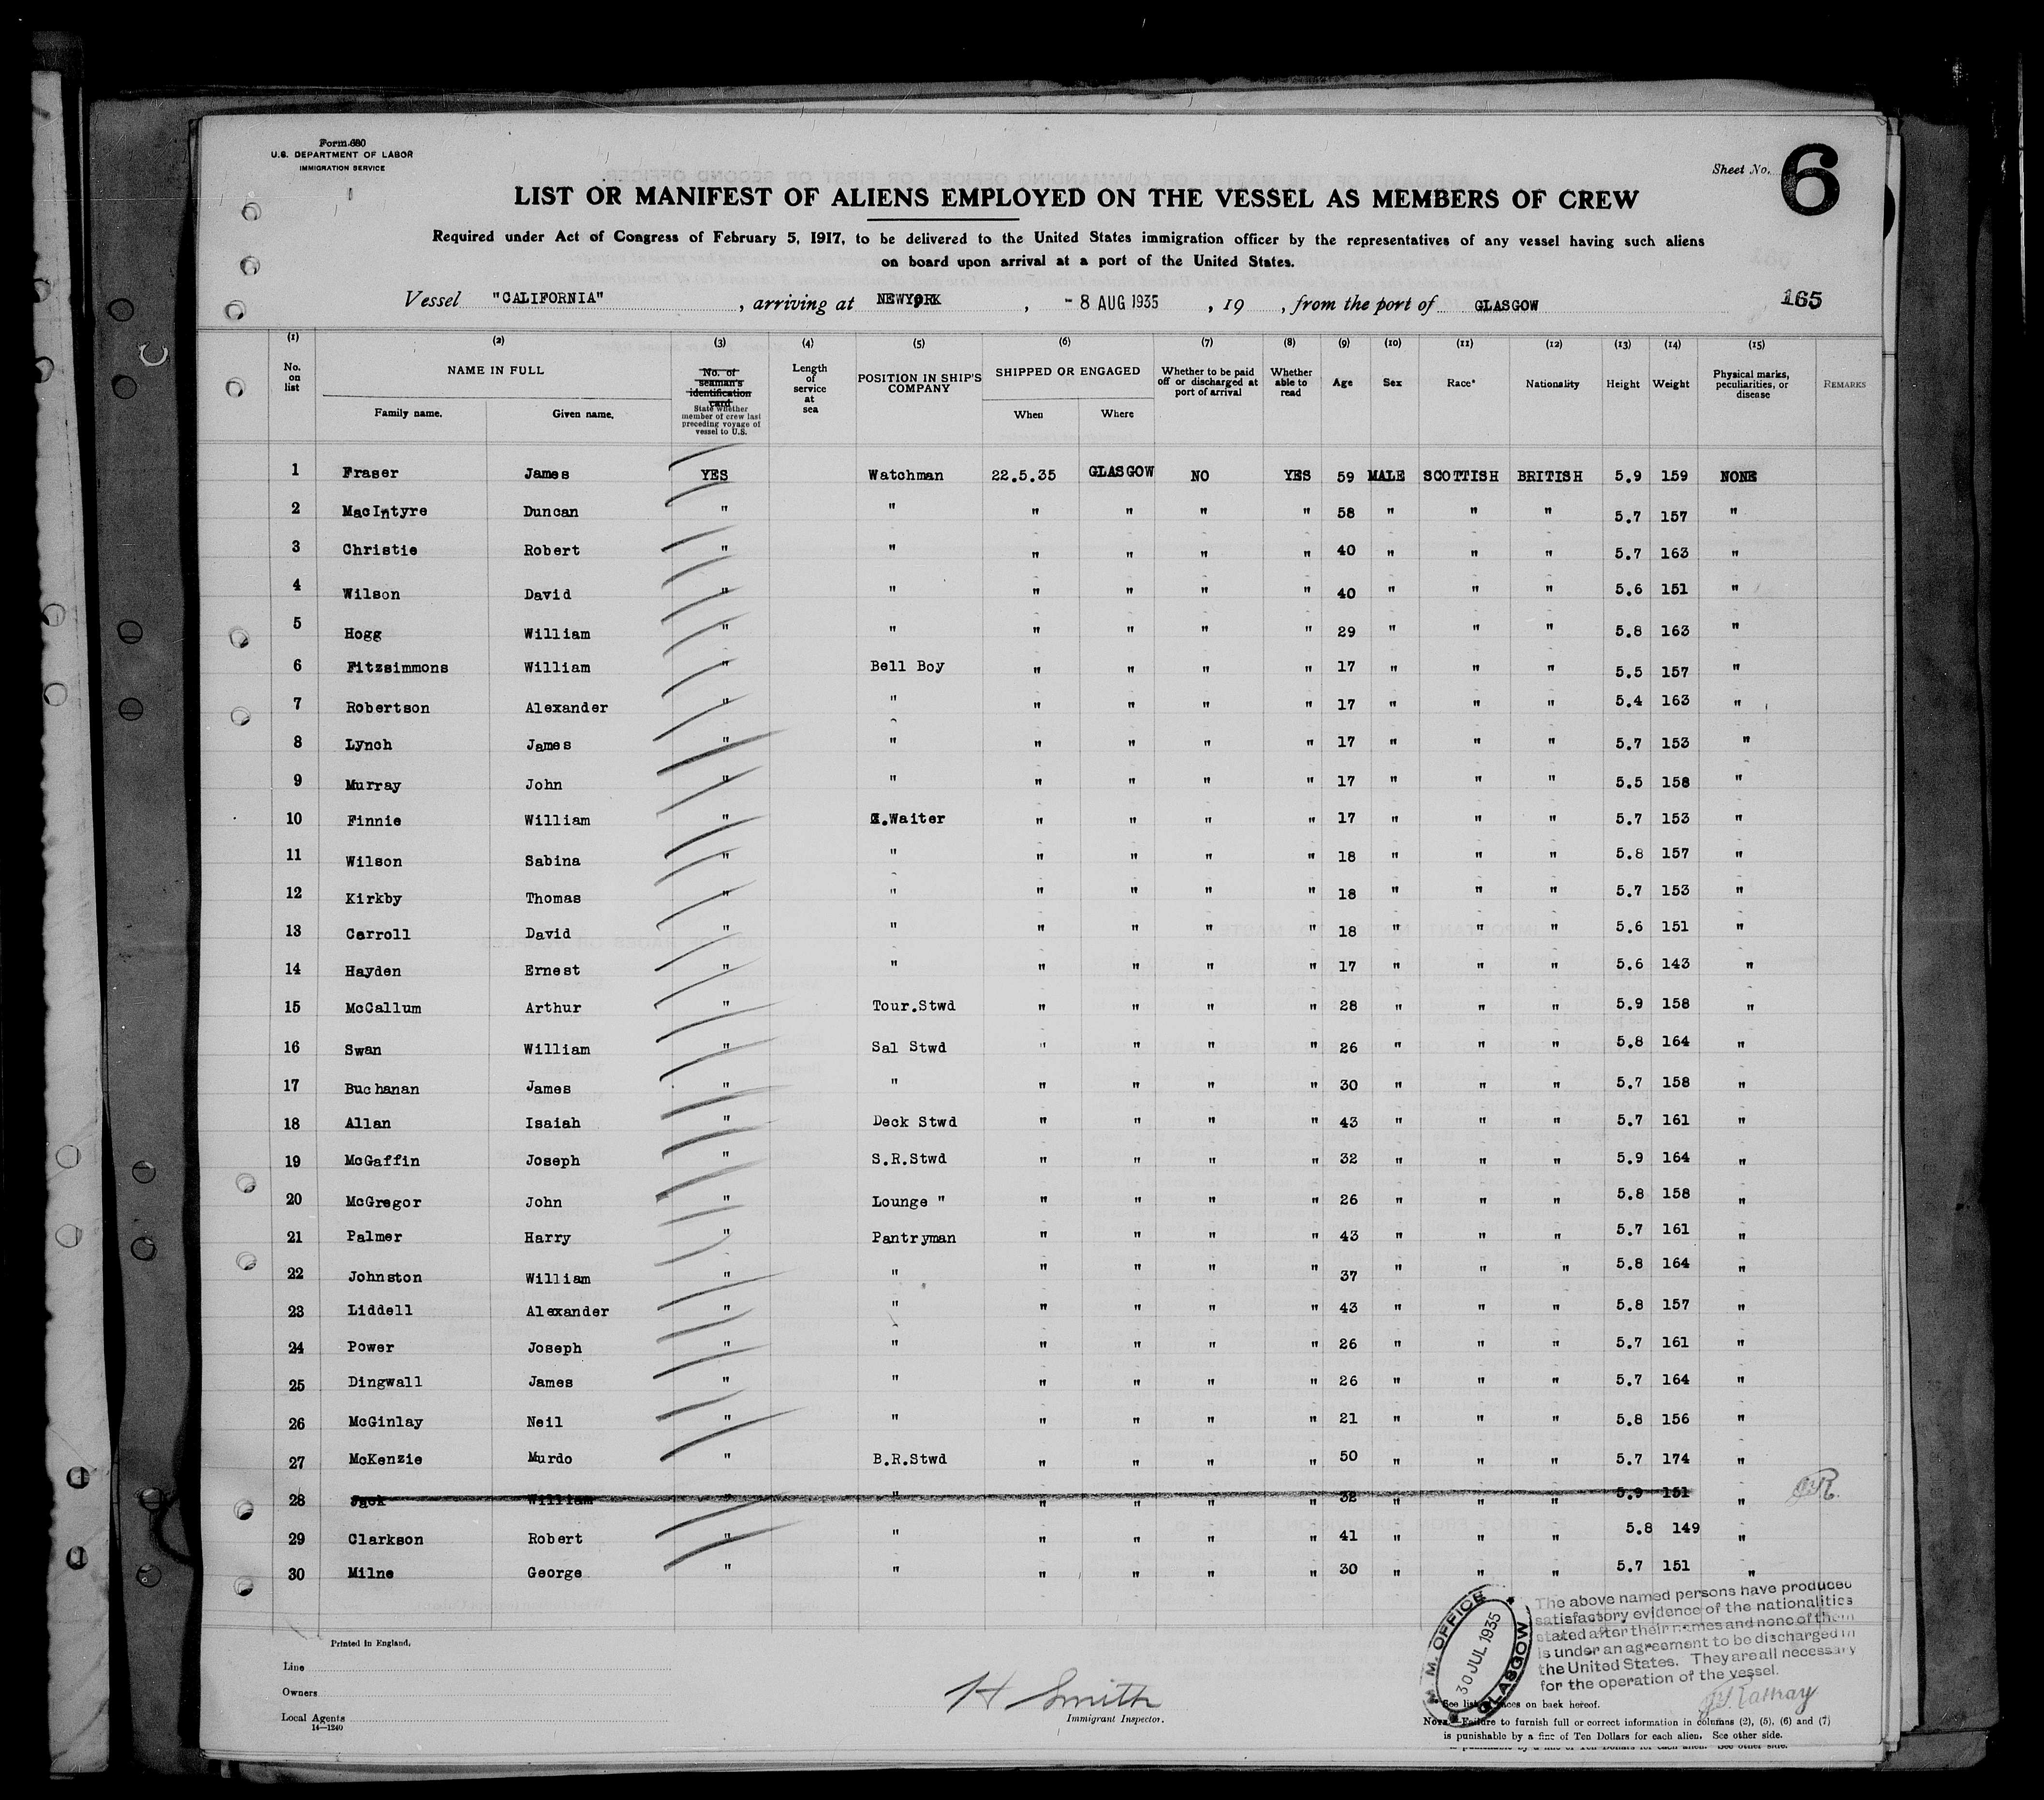 Form 680
U.S. DEPARTMENT OF LABOR
IMMIGRATION SERVICE
Sheet No. 6
LIST OR MANIFEST OF ALIENS EMPLOYED ON THE VESSEL AS MEMBERS OF CREW
Required under Act of Congress of February 5, 1917, to be delivered to the United States immigration officer by the representatives of any vessel having such aliens
on board upon arrival at a port of the United States.
Vessel "CALIFORNIA", arriving at NEWYORK, -8 AUG 1935, 19 , from the port of GLASGOW
165
(1) (2) (3) (4) (5) (6) (7) (8) (9) (10) (11) (12) (13) (14) (15)
No. on list NAME IN FULL Family name. Given name. No. of seaman's identification card State whether member of crew last preceding voyage of vessel to U.S. Length of service at sea POSITION IN SHIP'S COMPANY SHIPPED OR ENGAGED When Where Whether to be paid off or discharged at port of arrival Whether able to read Age Sex Race* Nationality Height Weight Physical marks, peculiarities, or disease REMARKS
1 Fraser James YES Watchman 22.5.35 GLASGOW NO YES 59 MALE SCOTTISH BRITISH 5.9 159 NONE
2 MacIntyre Duncan " " " " " " 58 " " " 5.7 157 "
3 Christie Robert " " " " " " 40 " " " 5.7 163 "
4 Wilson David " " " " " " 40 " " " 5.6 151 "
5 Hogg William " " " " " " 29 " " " 5.8 163 "
6 Fitzsimmons William " Bell Boy " " " " 17 " " " 5.5 157 "
7 Robertson Alexander " " " " " " 17 " " " 5.4 163 "
8 Lynch James " " " " " " 17 " " " 5.7 153 "
9 Murray John " " " " " " 17 " " " 5.5 158 "
10 Finnie William " .Waiter " " " " 17 " " " 5.7 153 "
11 Wilson Sabina " " " " " " 18 " " " 5.8 157 "
12 Kirkby Thomas " " " " " " 18 " " " 5.7 153 "
13 Carroll David " " " " " " 18 " " " 5.6 151 "
14 Hayden Ernest " " " " " " 17 " " " 5.6 143 "
15 McCallum Arthur " Tour.Stwd " " " " 28 " " " 5.9 158 "
16 Swan William " Sal Stwd " " " " 26 " " " 5.8 164 "
17 Buchanan James " " " " " " 30 " " " 5.7 158 "
18 Allan Isaiah " Deck Stwd " " " " 43 " " " 5.7 161 "
19 McGaffin Joseph " S.R.Stwd " " " " 32 " " " 5.9 164 "
20 McGregor John " Lounge " " " " " 26 " " " 5.8 158 "
21 Palmer Harry " Pantryman " " " " 43 " " " 5.7 161 "
22 Johnston William " " " " " " 37 " " " 5.8 164 "
23 Liddell Alexander " " " " " " 43 " " " 5.8 157 "
24 Power Joseph " " " " " " 26 " " " 5.7 161 "
25 Dingwall James " " " " " " 26 " " " 5.7 164 "
26 McGinlay Neil " " " " " " 21 " " " 5.8 156 "
27 McKenzie Murdo " B.R.Stwd " " " " 50 " " " 5.7 174 "
28 Jack William " " " " " " 32 " " " 5.9 151 "
29 Clarkson Robert " " " " " " 41 " " " 5.8 149 "
30 Milne George " " " " " " 30 " " " 5.7 151 "
Printed in England.
Line
Owners
Local Agents
14—1240
H Smith
Immigrant Inspector.
M. M. OFFICE GLASGOW
30 JUL 1935
The above named persons have produced
satisfactory evidence of the nationalities
stated after their names and none of them
is under an agreement to be discharged in
the United States. They are all necessary
for the operation of the vessel.
See list of races on back hereof.
NOTE.—Failure to furnish full or correct information in columns (2), (5), (6) and (7)
is punishable by a fine of Ten Dollars for each alien. See other side.